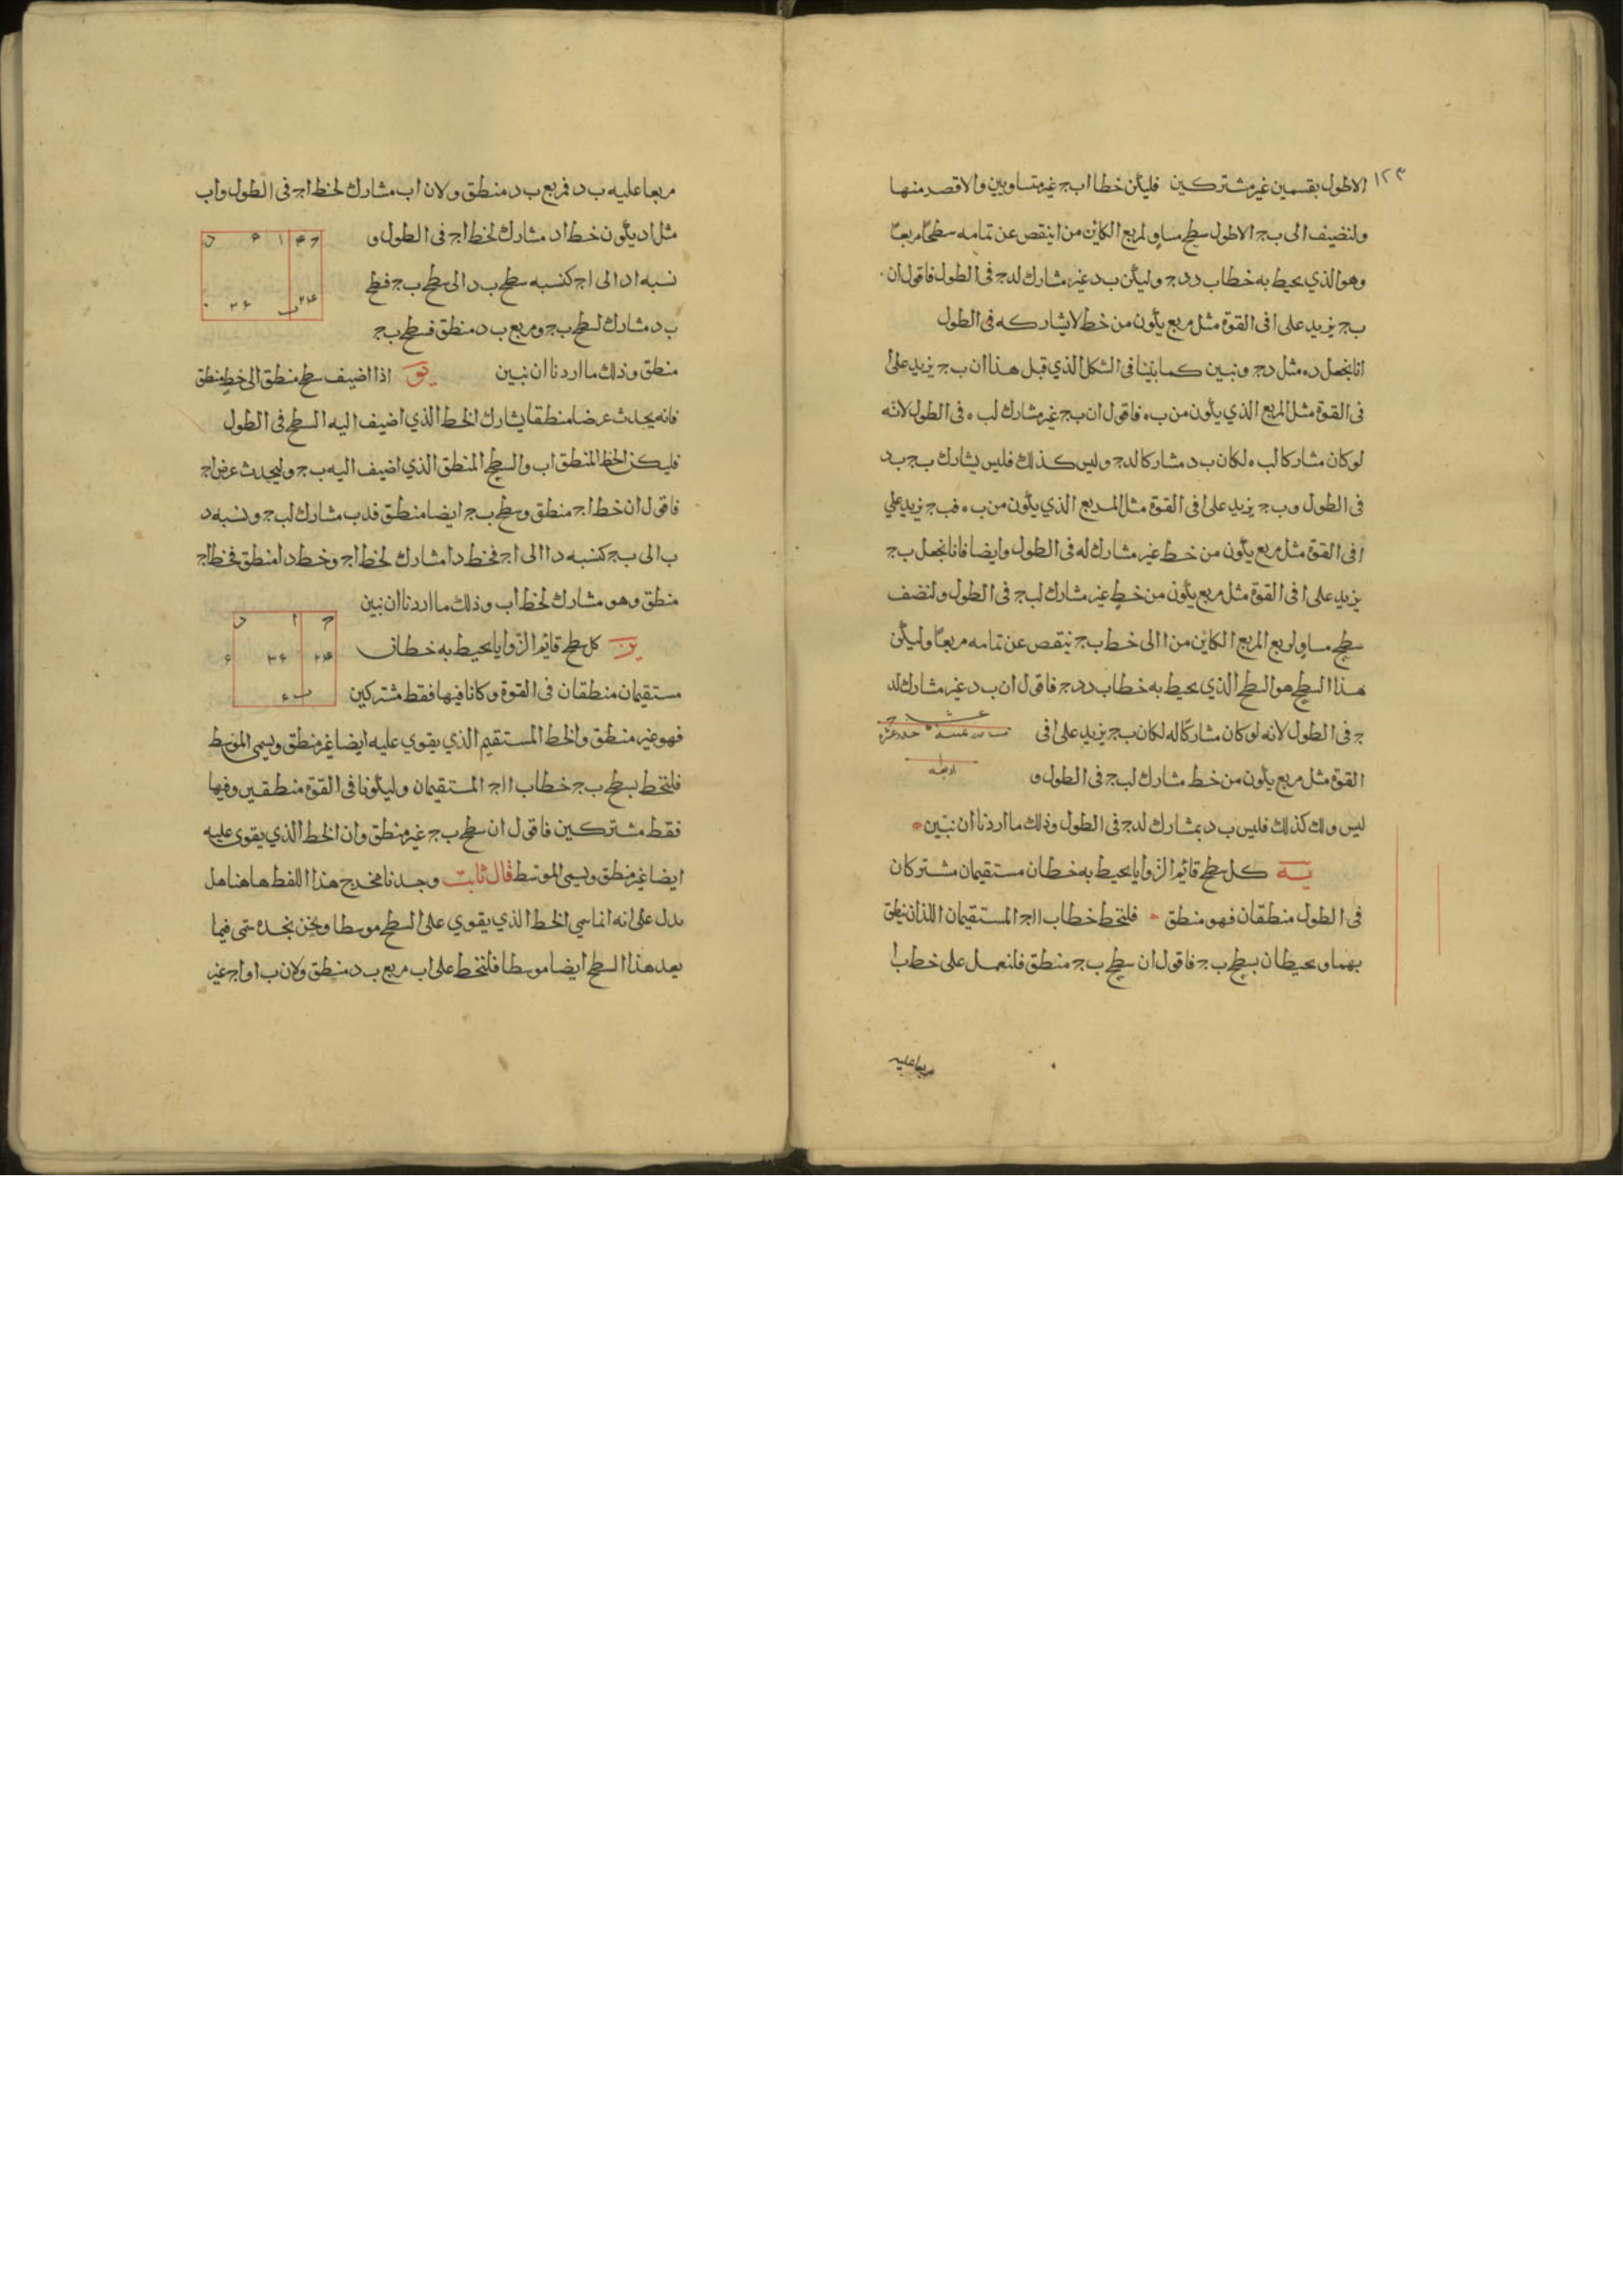 ١٢٣
الاطول بقسمين غير مشتركين فليكن خطا ا ب ج غير متساويين والاقصر منها ا
ولنضيف الى ب ج الاطول سطح مساو لمربع الكائن من ا ينقص عن تمامه سطحًا مربعًا
وهو الذي يحيط به خطا ب د د ج وليكن ب د غير مشارك لد ج فى الطول فاقول ان
ب ج يزيد على ا فى القوة مثل مربع يكون من خط لا يشاركه فى الطول
انا نجعل د ه مثل د ج ونبين كما بيّنا فى الشكل الذي قبل هذا ان ب ج يزيد على ا
فى القوة مثل المربع الذي يكون من ب ه فاقول ان ب ج غير مشارك لب ه فى الطول لانّه
لو كان مشاركا لب ه لكان ب د مشاركا لد ج وليس كذلك فليس يشارك ب ج ب د
فى الطول وب ج يزيد على ا فى القوة مثل المربع الذي يكون من ب ه فب ج يزيد علي
ا فى القوة مثل مربع يكون من خط غير مشارك له فى الطول وايضا فانا نجعل ب ج
يزيد على ا فى القوة مثل مربع يكون من خطٍ غير مشارك لب ج فى الطول ولنضف
سطح مساو لربع المربع الكاين من ا الى خط ب ج ينقص عن تمامه مربعًا وليكن
هذا السطح هو السطح الذي يحيط به خطا ب د د ج فاقول ان ب د غير مشارك لد
ج فى الطول لانه لو كان مشاركًا له لكان ب ج يزيد على ا فى
القوة مثل مربع يكون من خط مشارك لب ج فى الطول و
ليس ذلك كذلك فليس ب د بمشارك لد ج فى الطول وذلك ما اردنا ان نبيّن
يه كل سطح قائم الزوايا يحيط به خطان مستقيمان مشتركان
فى الطول منطقان فهو منطق فلنخط خطا ب ا ا ج المستقيمان اللذان ينطق
بهما ويحيطان بسطح ب ج فاقول ان سطح ب ج منطق فلنعمل على خط ب ا
مربعا عليه
مربعا عليه ب د فمربع ب د منطق ولان ا ب مشارك لخط ا ج فى الطول وا ب
مثل ا د يكون خط ا د مشارك لخط ا ج فى الطول و
نسبه ا د الى ا ج كنسبه سطح ب د الى سطح ب ج فسطح
ب د مشارك لسطح ب ج ومربع ب د منطق فسطح ب ج
منطق وذلك ما اردنا ان نبين يو اذا اضيف سطح منطق الى خط منطق
فانه يحدث عرضا منطقا يشارك الخط الذي اضيف اليه السطح فى الطول
فليكن الخط المنطق ا ب والسطح المنطق الذي اضيف اليه ب ج وليحدث عرض ا ج
فاقول ان خط ا ج منطق وسطح ب ج ايضا منطق فد ب مشارك لب ج ونسبه د
ب الى ب ج كنسبه د ا الى ا ج فخط د ا مشارك لخط ا ج وخط د ا منطق فخط ا ج
منطق وهو مشارك لخط ا ب وذلك ما اردنا ان نبين
يز كل سطح قائم الزوايا يحيط به خطان
مستقيمان منطقان فى القوة وكانا فيها فقط مشتركين
فهو غير منطق والخط المستقيم الذي يقوي عليه ايضا غير منطق ويسمى الموسط
فلنخط بسطح ب ج خطا ب ا ا ج المستقيمان وليكونا فى القوة منطقين وفيها
فقط مشتركين فاقول ان سطح ب ج غير منطق وان الخط الذي يقوى عليه
ايضا غير منطق ويسمى الموسط قال ثابت وجدنا مخرج هذا اللفظ هاهنا هل
يدل على انه انما سمي الخط الذي يقوي على السطح موسطا ونحن نجده سمى فيما
بعد هذا السطح ايضا موسطا فلنخط على ا ب مربع ب د منطق ولان ب ا وا ج غير